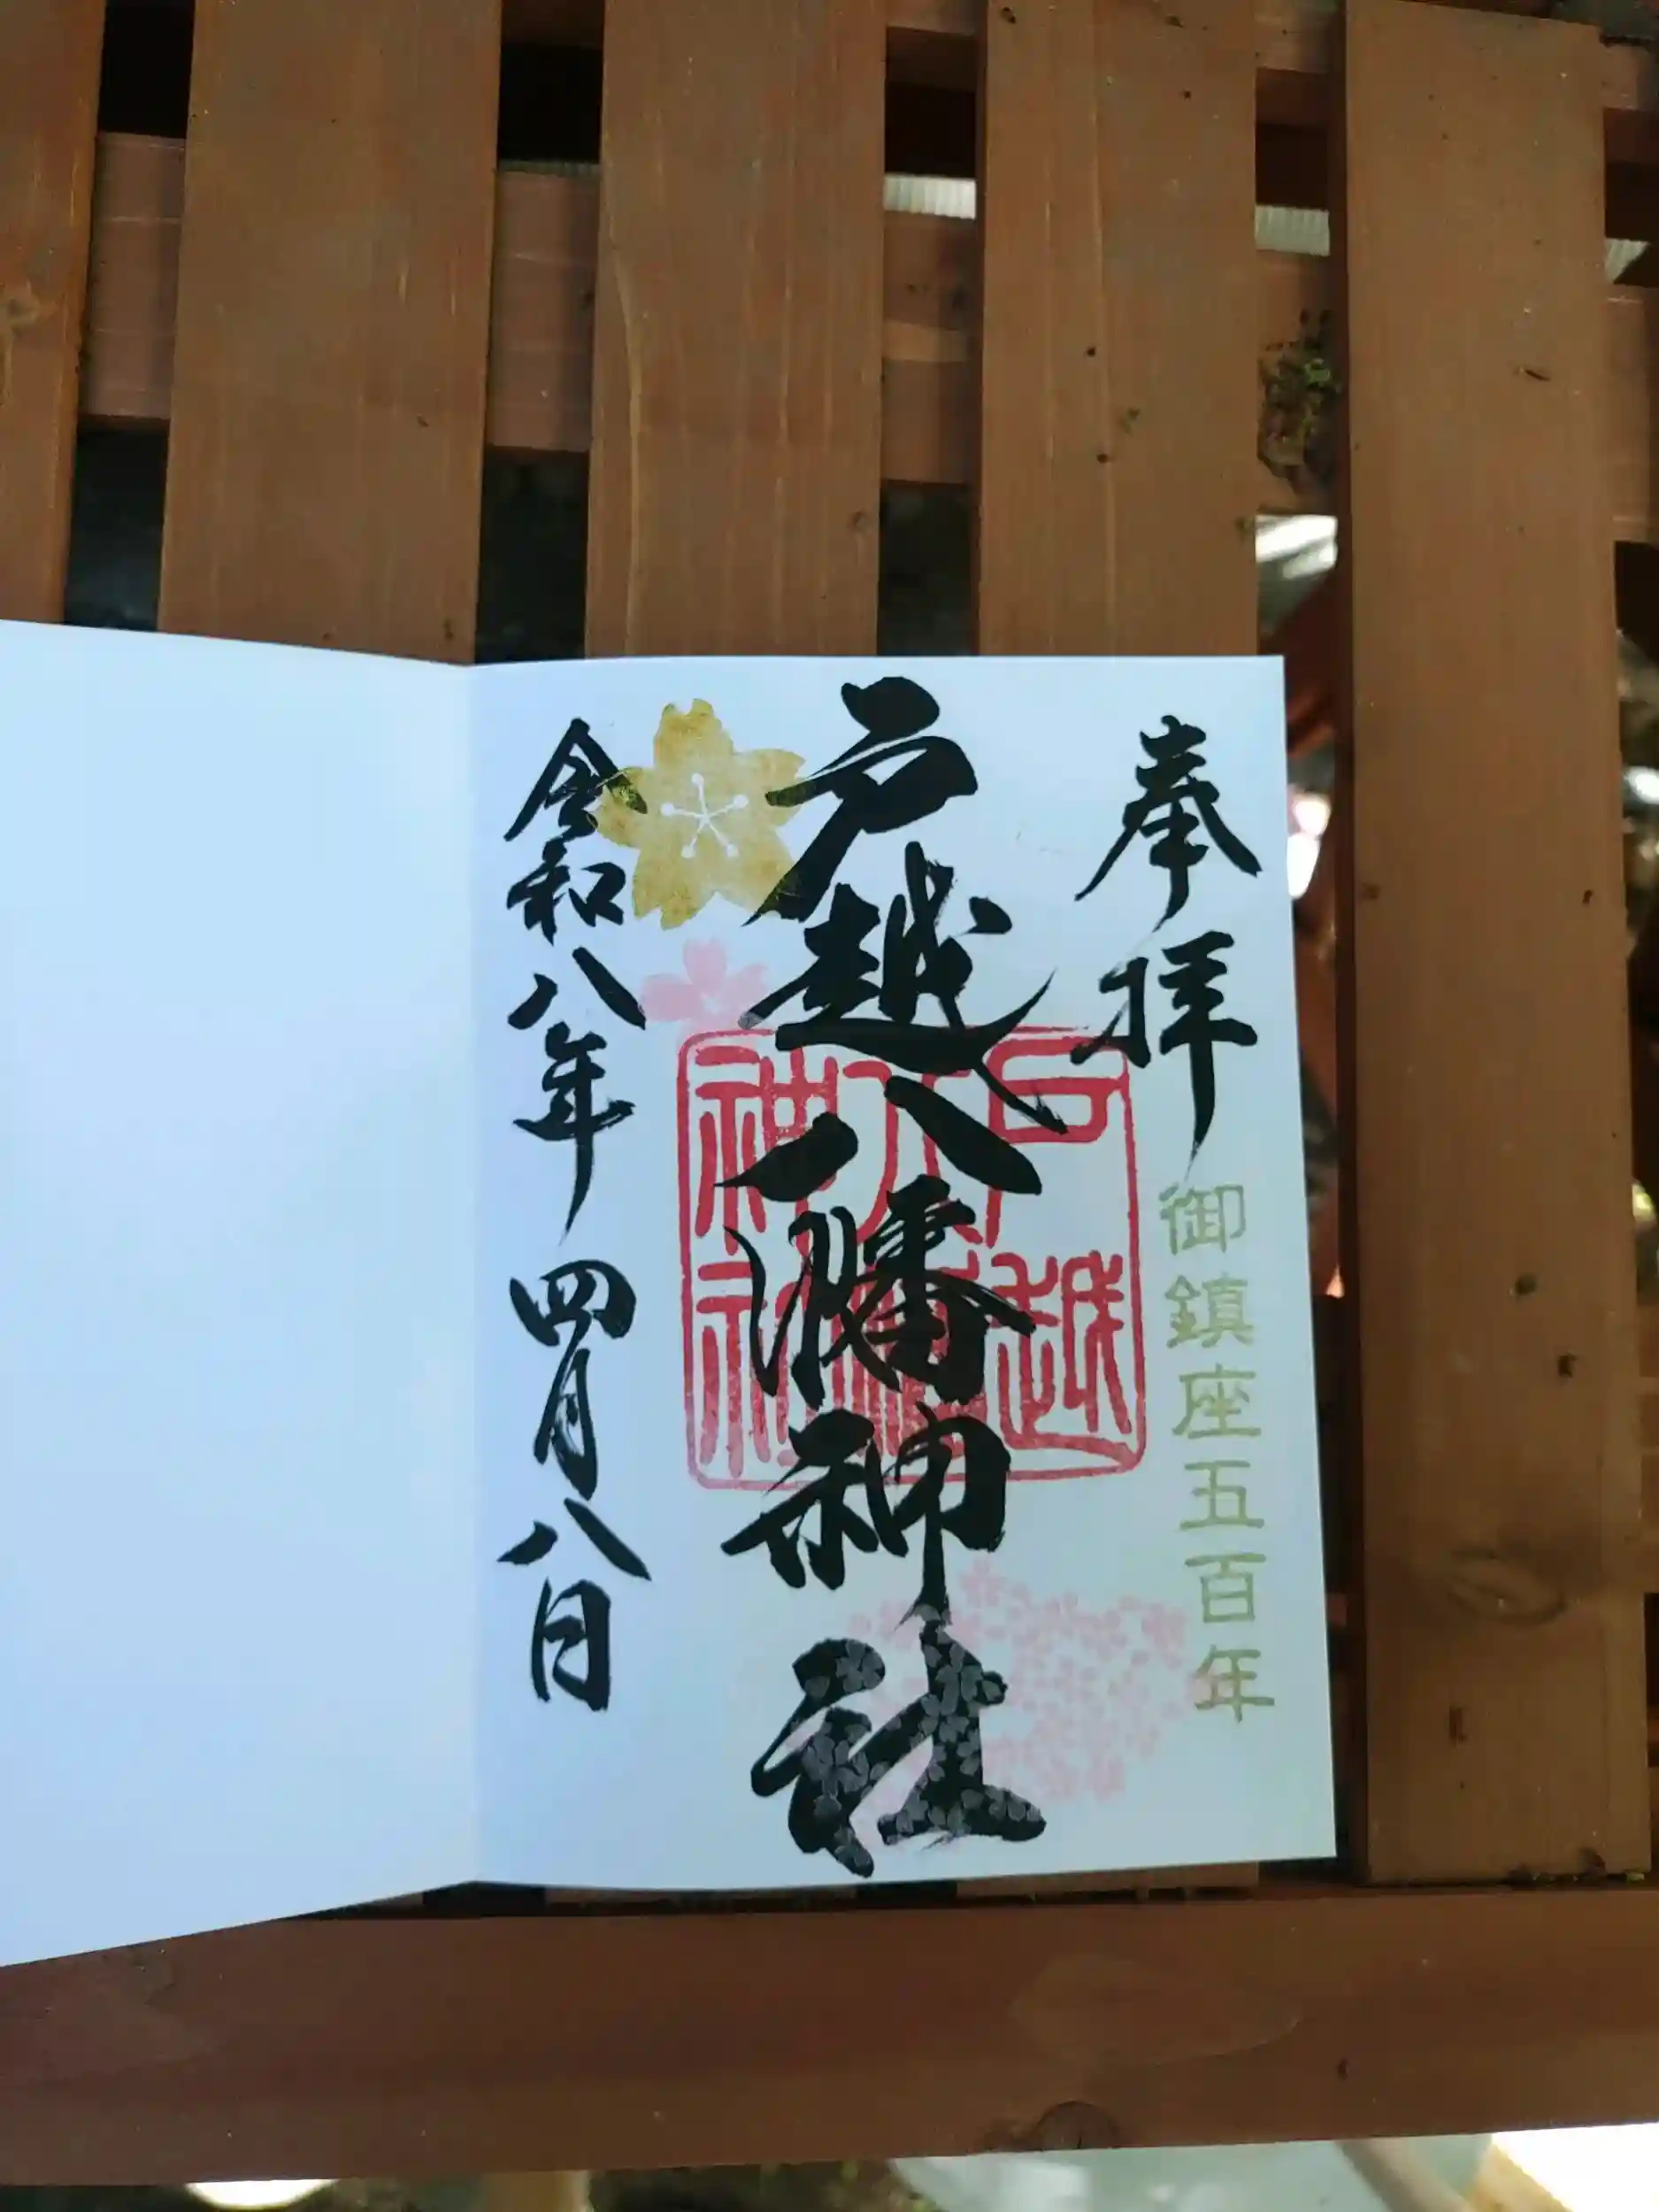 奉拝
御鎮座五百年
戸越八幡神社
戸越
八幡
神社
令和八年 四月八日